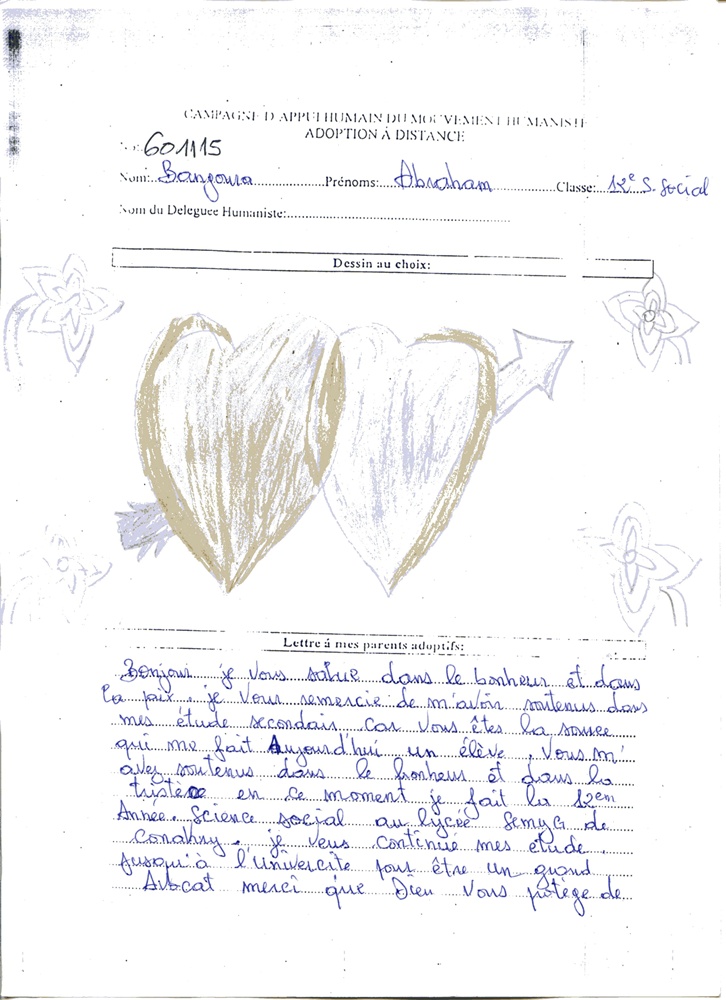 CAMPAGNE D'APPUI HUMAIN DU MOUVEMENT HUMANISTE
ADOPTION À DISTANCE
No: 601115
Nom: Bangoura Prénoms: Abraham Classe: 12e S. Social
Nom du Deleguee Humaniste:
Dessin au choix:
Lettre á mes parents adoptifs:
Bonjour je vous salue dans le bonheur et dans
la paix. je vous remercie de m'avoir soutenus dans
mes étude secondais car vous êtes la source
qui me fait Aujourd'hui un élève. Vous m'
avez soutenus dans le bonheur et dans la
tristèce en ce moment je fait la 12em
Année. Science social au lycée Semyg de
Conakry. je veus continué mes étude.
jusqu'à l'univercite pour être un grand
Avocat merci que Dieu vous potège de